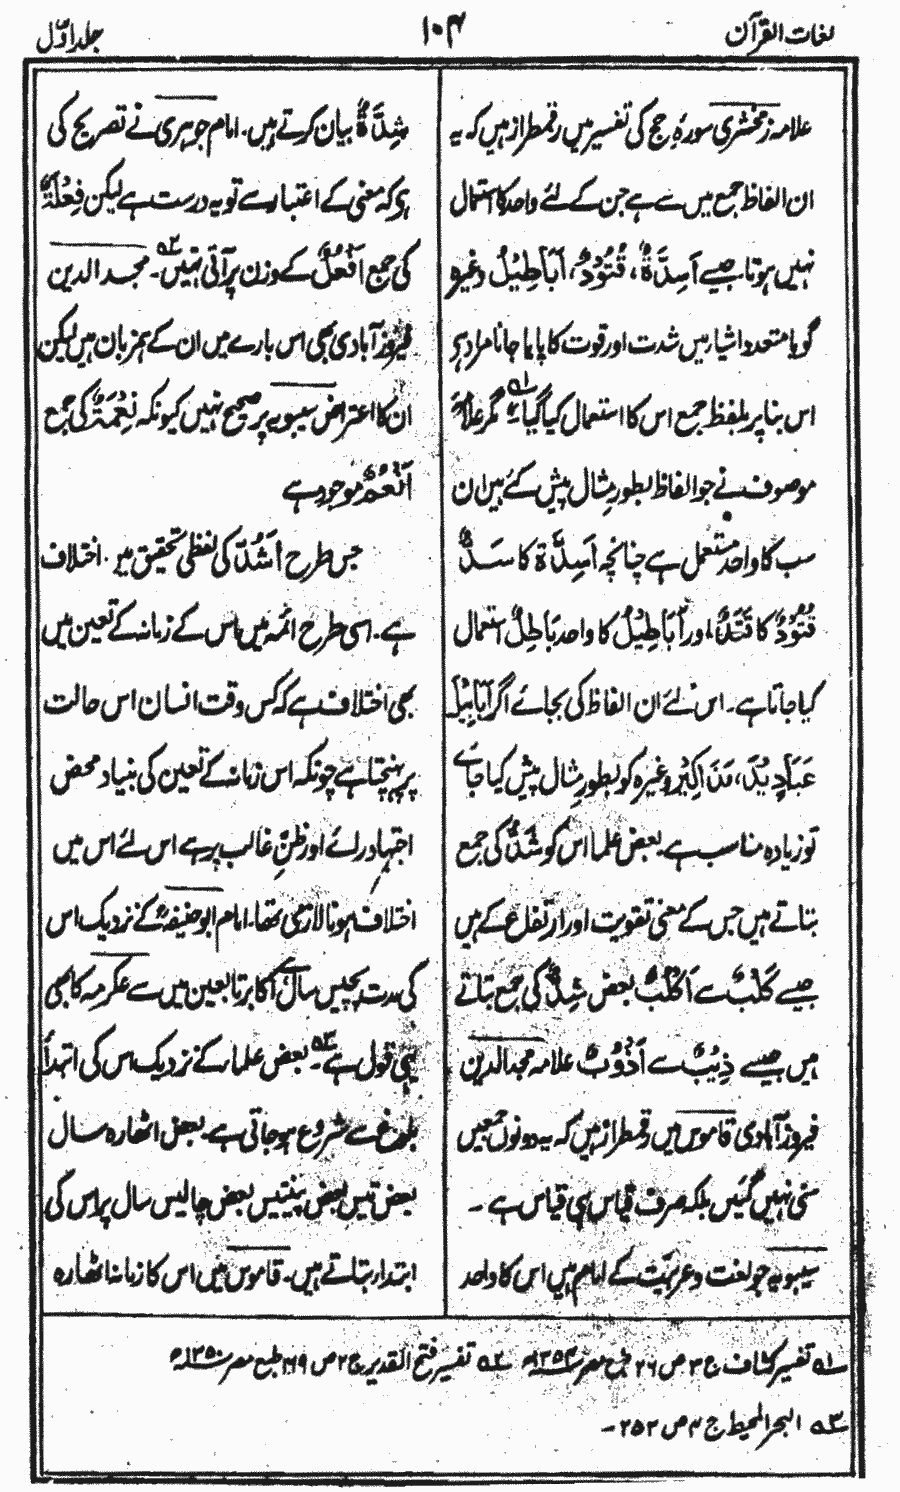 لغات القرآن
۱۰۴
جلد اوّل
علامہ زمخشری سورۂ حج کی تفسیر میں رقمطراز ہیں کہ یہ
ان الفاظ جمع میں سے ہے جن کے لئے واحد کا استعمال
نہیں ہوتا جیسے اَسِدَّةٌ، قُتُوْدٌ، اَبَاطِیْلُ وغیرہ
گویا متعدد اشیاء میں شدت اور قوت کا پایا جانا مراد ہے
اس بنا پر بلفظ جمع اس کا استعمال کیا گیا ۱؎ مگر علامہ
موصوف نے جو الفاظ بطور مثال پیش کئے ہیں ان
سب کا واحد مستعمل ہے چنانچہ اَسِدَّة کا سَدٌّ
قُتُوْدٌ کا قَتَدٌ، اور اَبَاطِیْلُ کا واحد بَاطِلٌ استعمال
کیا جاتا ہے۔ اس لئے ان الفاظ کی بجائے اگر اَبَابِیْلَ
عَبَادِیْدَ، مَذَاکِیْر وغیرہ کو بطور مثال پیش کیا جائے
تو زیادہ مناسب ہے۔ بعض علماء اس کو شَدٌّ کی جمع
بتاتے ہیں جس کے معنی تقویت اور ارتفاع کے ہیں
جیسے کَلْبٌ سے اَکْلُبٌ بعض شِدٌّ کی جمع بتاتے
ہیں جیسے ذِئْبٌ سے اَذْؤُبٌ علامہ مجد الدین
فیروز آبادی قاموس میں رقمطراز ہیں کہ یہ دونوں جمعیں
سنی نہیں گئیں بلکہ صرف قیاس ہی قیاس ہے ۔
سیبویہ جو لغت و عربیت کے امام ہیں اس کا واحد
شِدَّةٌ بیان کرتے ہیں۔ امام جوہری نے تصریح کی
ہے کہ معنی کے اعتبار سے تو یہ درست ہے لیکن فِعْلَةٌ
کی جمع اَفْعُلٌ کے وزن پر آتی نہیں ۲؎۔ مجد الدین
فیروز آبادی بھی اس بارے میں ان کے ہمزبان ہیں لیکن
ان کا اعتراض سیبویہ پر صحیح نہیں کیونکہ نِعْمَةٌ کی جمع
اَنْعُمٌ موجود ہے
جس طرح اَشُدَّ کی لفظی تحقیق میں اختلاف
ہے۔ اسی طرح ائمہ میں اس کے زمانہ کے تعین میں
بھی اختلاف ہے کہ کس وقت انسان اس حالت
پر پہنچتا ہے چونکہ اس زمانہ کے تعین کی بنیاد محض
اجتہاد رائے اور ظنِّ غالب پر ہے اس لئے اس میں
اختلاف ہونا لازمی تھا۔ امام ابو حنیفہؒ کے نزدیک اس
کی مدت پچیس سال کا برتابعین میں سے عکرمہ کا بھی
یہی قول ہے ۳؎۔ بعض علماء کے نزدیک اس کی ابتداء
بلوغ سے شروع ہو جاتی ہے۔ بعض اٹھارہ سال
بعض تیس بعض پینتیس بعض چالیس سال پر اس کی
ابتداء بتاتے ہیں۔ قاموس میں اس کا زمانہ اٹھارہ
۱؎ تفسیر کشاف ج ۳ ص ۲۶ طبع مصر ۱۳۵۴ھ ۲؎ تفسیر فتح القدیر ج ۲ ص ۱۶۹ طبع مصر ۱۳۵۰ھ
۳؎ البحر المحیط ج ۴ ص ۲۵۲ ۔